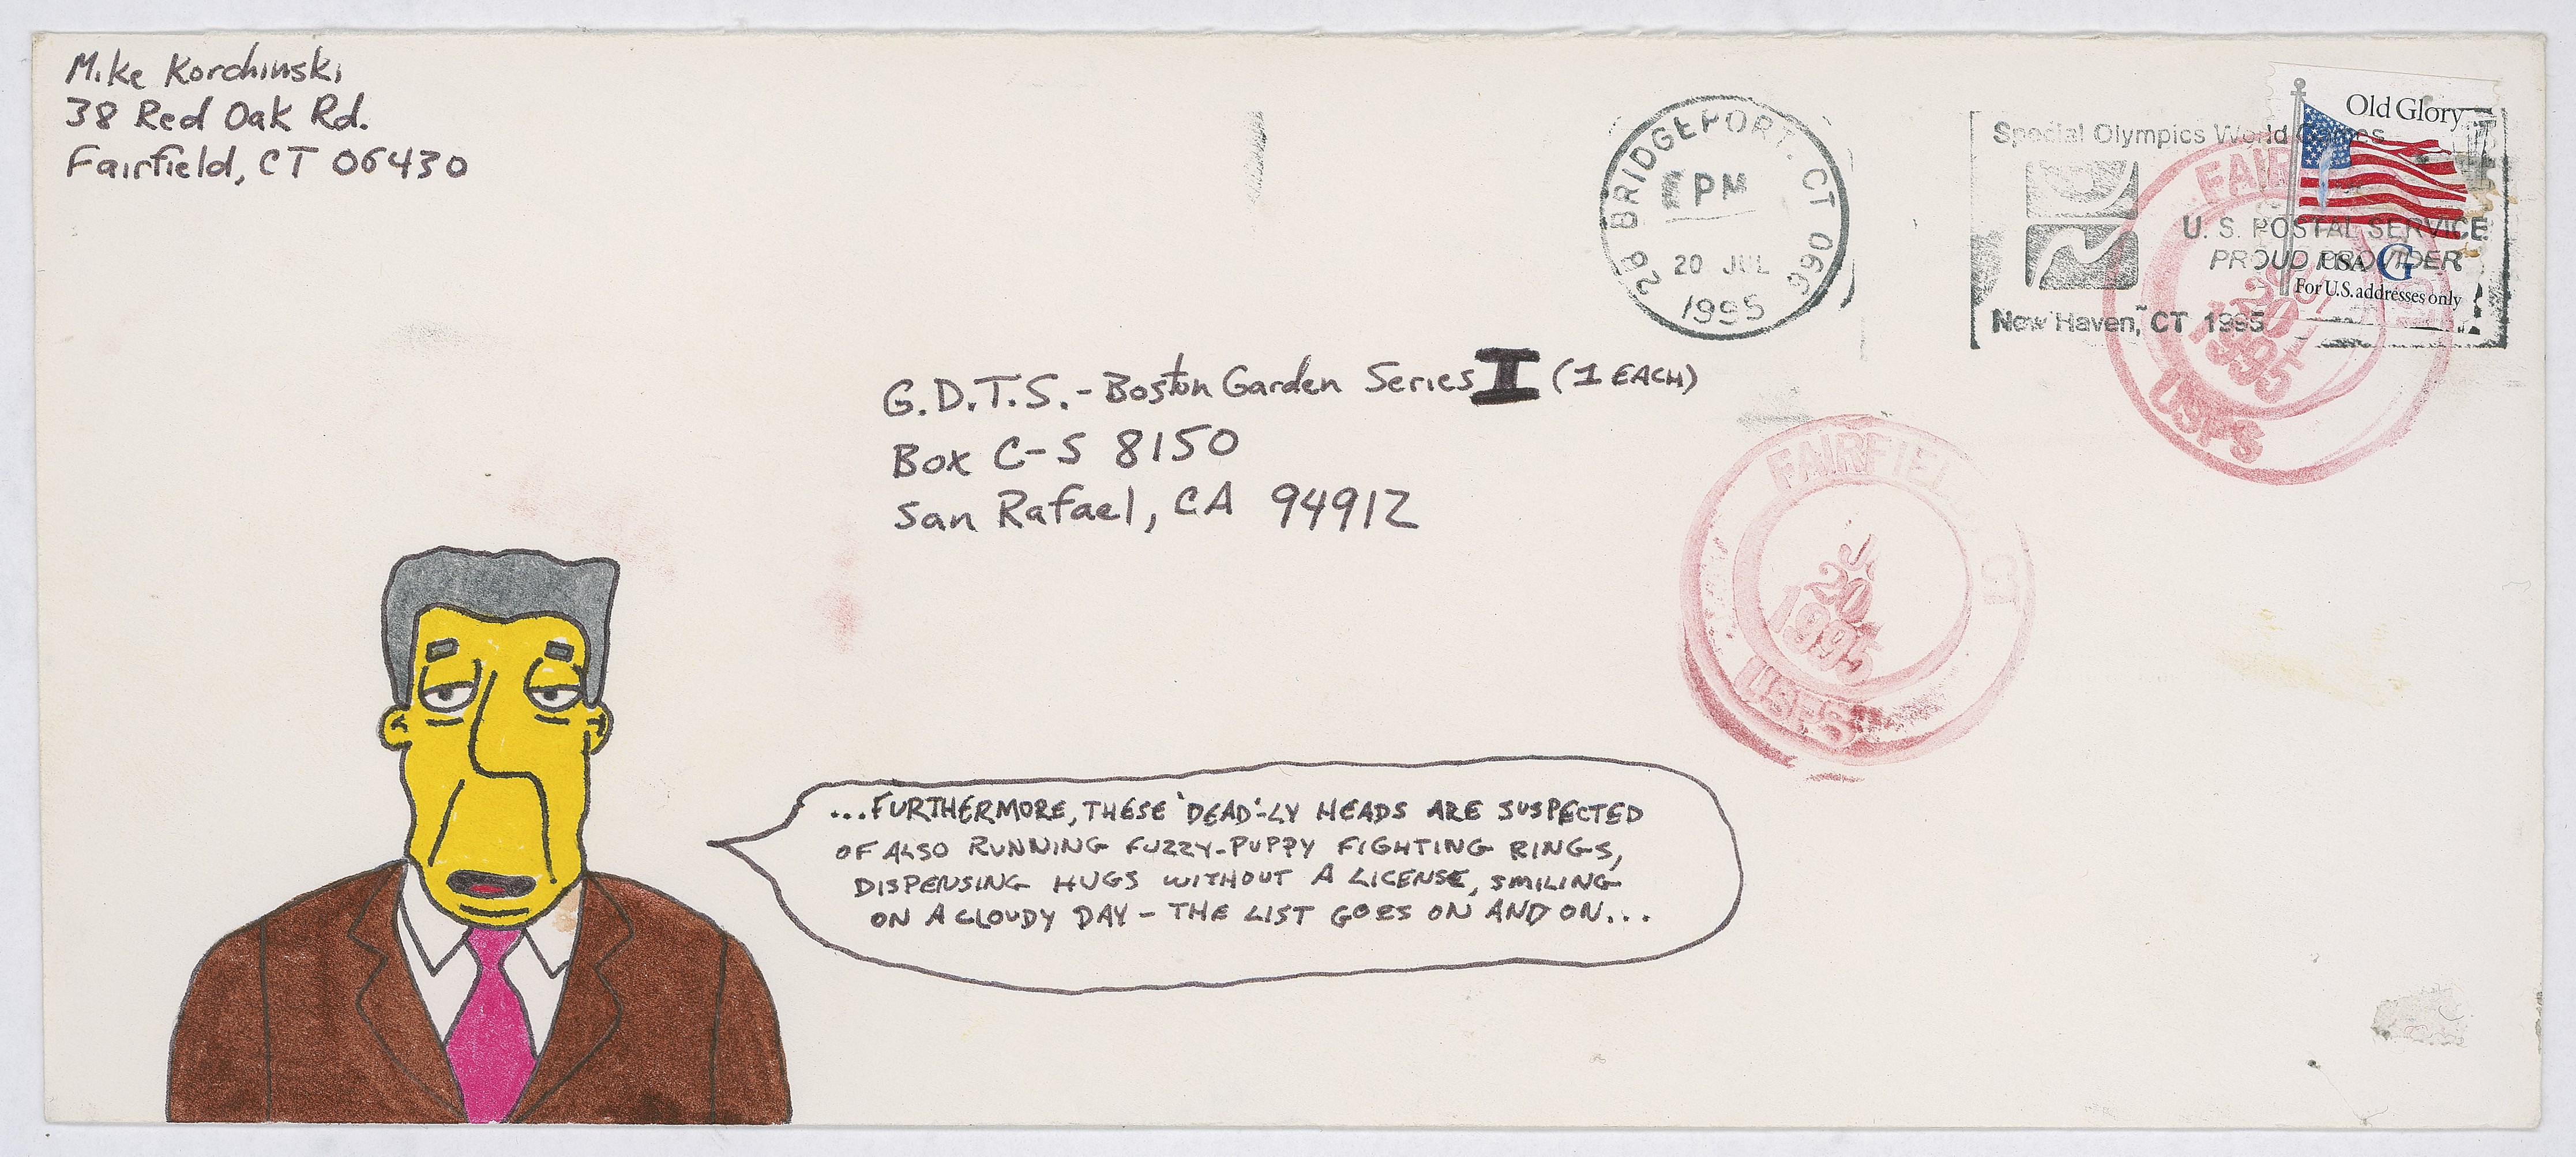 Mike Korchinski
38 Red Oak Rd.
Fairfield, CT 06430
BRIDGEPORT, CT 066
PM
20 JUL
1995
Special Olympics World Games
U. S. POSTAL SERVICE
PROUD PROVIDER
New Haven, CT 1995
Old Glory
USA G
For U.S. addresses only
20
1995
USPS
G.D.T.S. - Boston Garden Series I (1 EACH)
Box C-S 8150
San Rafael, CA 94912
FAIRFIEL CT
20
1995
USPS
...FURTHERMORE, THESE 'DEAD'-LY HEADS ARE SUSPECTED
OF ALSO RUNNING FUZZY-PUPPY FIGHTING RINGS,
DISPENSING HUGS WITHOUT A LICENSE, SMILING
ON A CLOUDY DAY - THE LIST GOES ON AND ON...